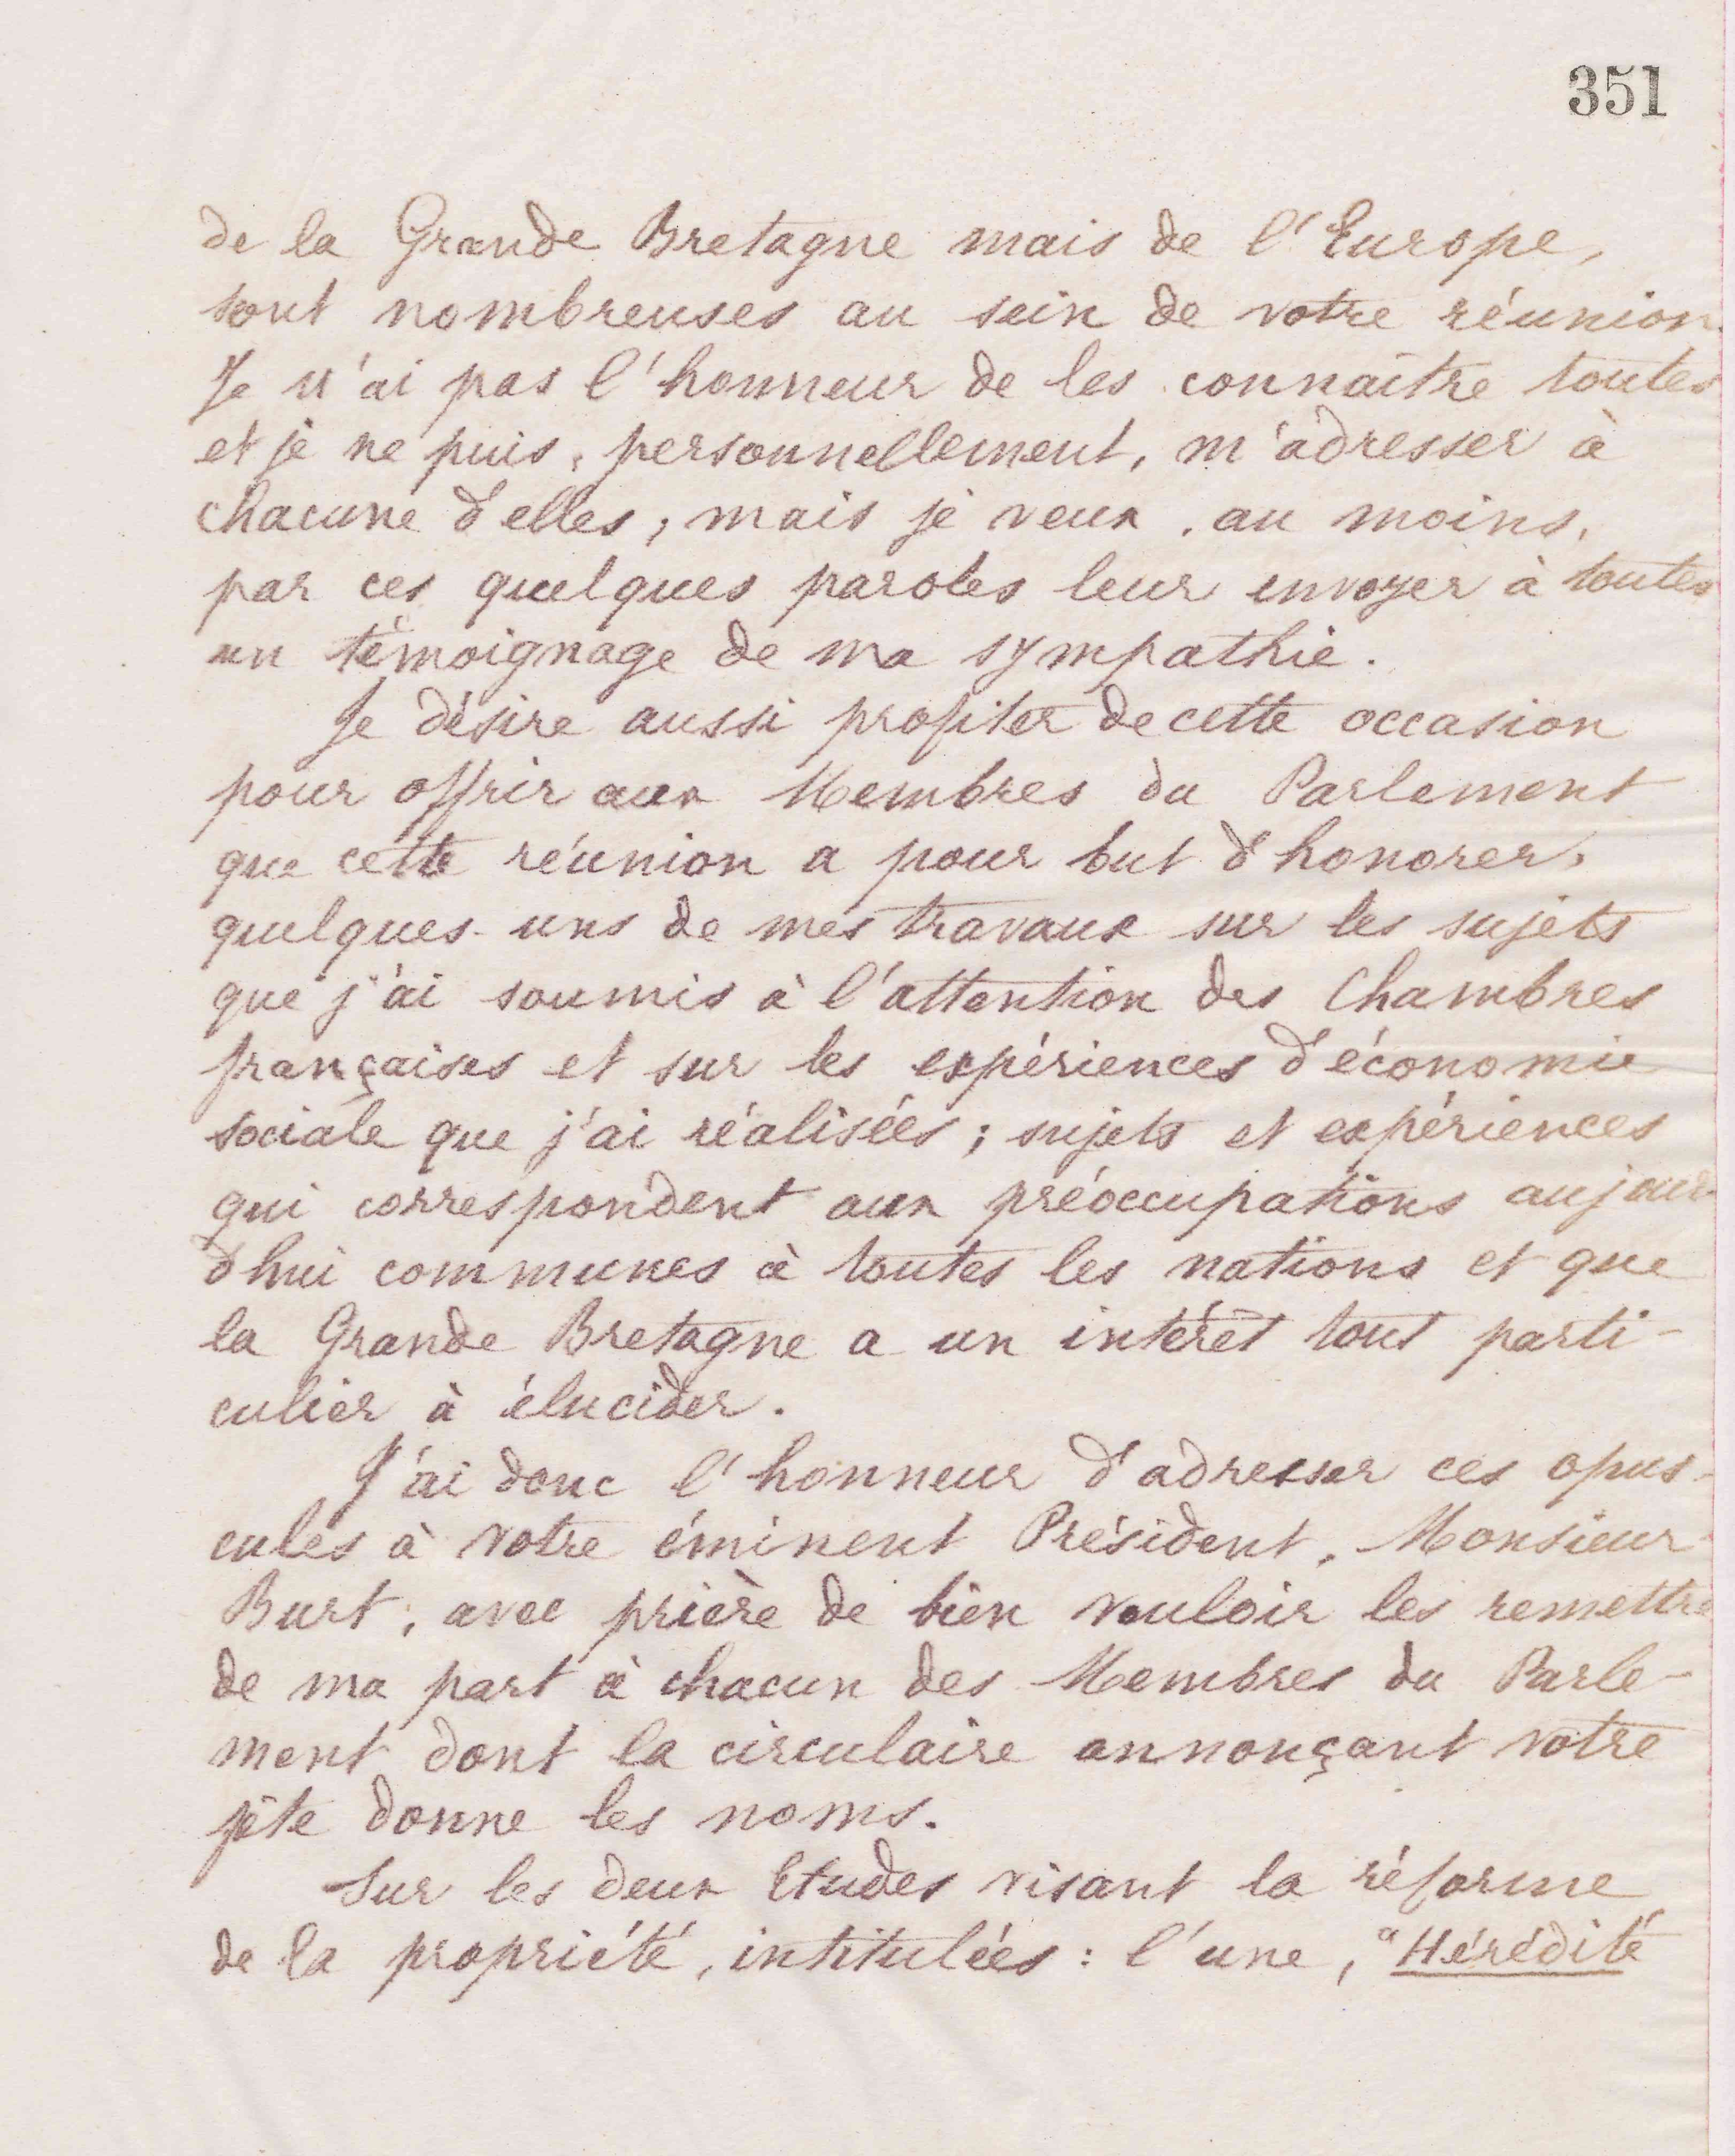 351
de la Grande Bretagne mais de l'Europe,
sont nombreuses au sein de votre réunion.
Je n'ai pas l'honneur de les connaître toutes
et je ne puis, personnellement, m'adresser à
chacune d'elles, mais je veux, au moins,
par ces quelques paroles leur envoyer à toutes
un témoignage de ma sympathie.
Je désire aussi profiter de cette occasion
pour offrir aux Membres du Parlement
que cette réunion a pour but d'honorer,
quelques-uns de mes travaux sur les sujets
que j'ai soumis à l'attention des Chambres
françaises et sur les expériences d'économie
sociale que j'ai réalisées ; sujets et expériences
qui correspondent aux préoccupations aujour-
d'hui communes à toutes les nations et que
la Grande Bretagne a un intérêt tout parti-
culier à élucider.
J'ai donc l'honneur d'adresser ces opus-
cules à votre éminent Président, Monsieur
Burt, avec prière de bien vouloir les remettre
de ma part à chacun des Membres du Parle-
ment dont la circulaire annonçant votre
fête donne les noms.
Sur les deux Etudes visant la réforme
de la propriété, intitulées : l'une, "Hérédité